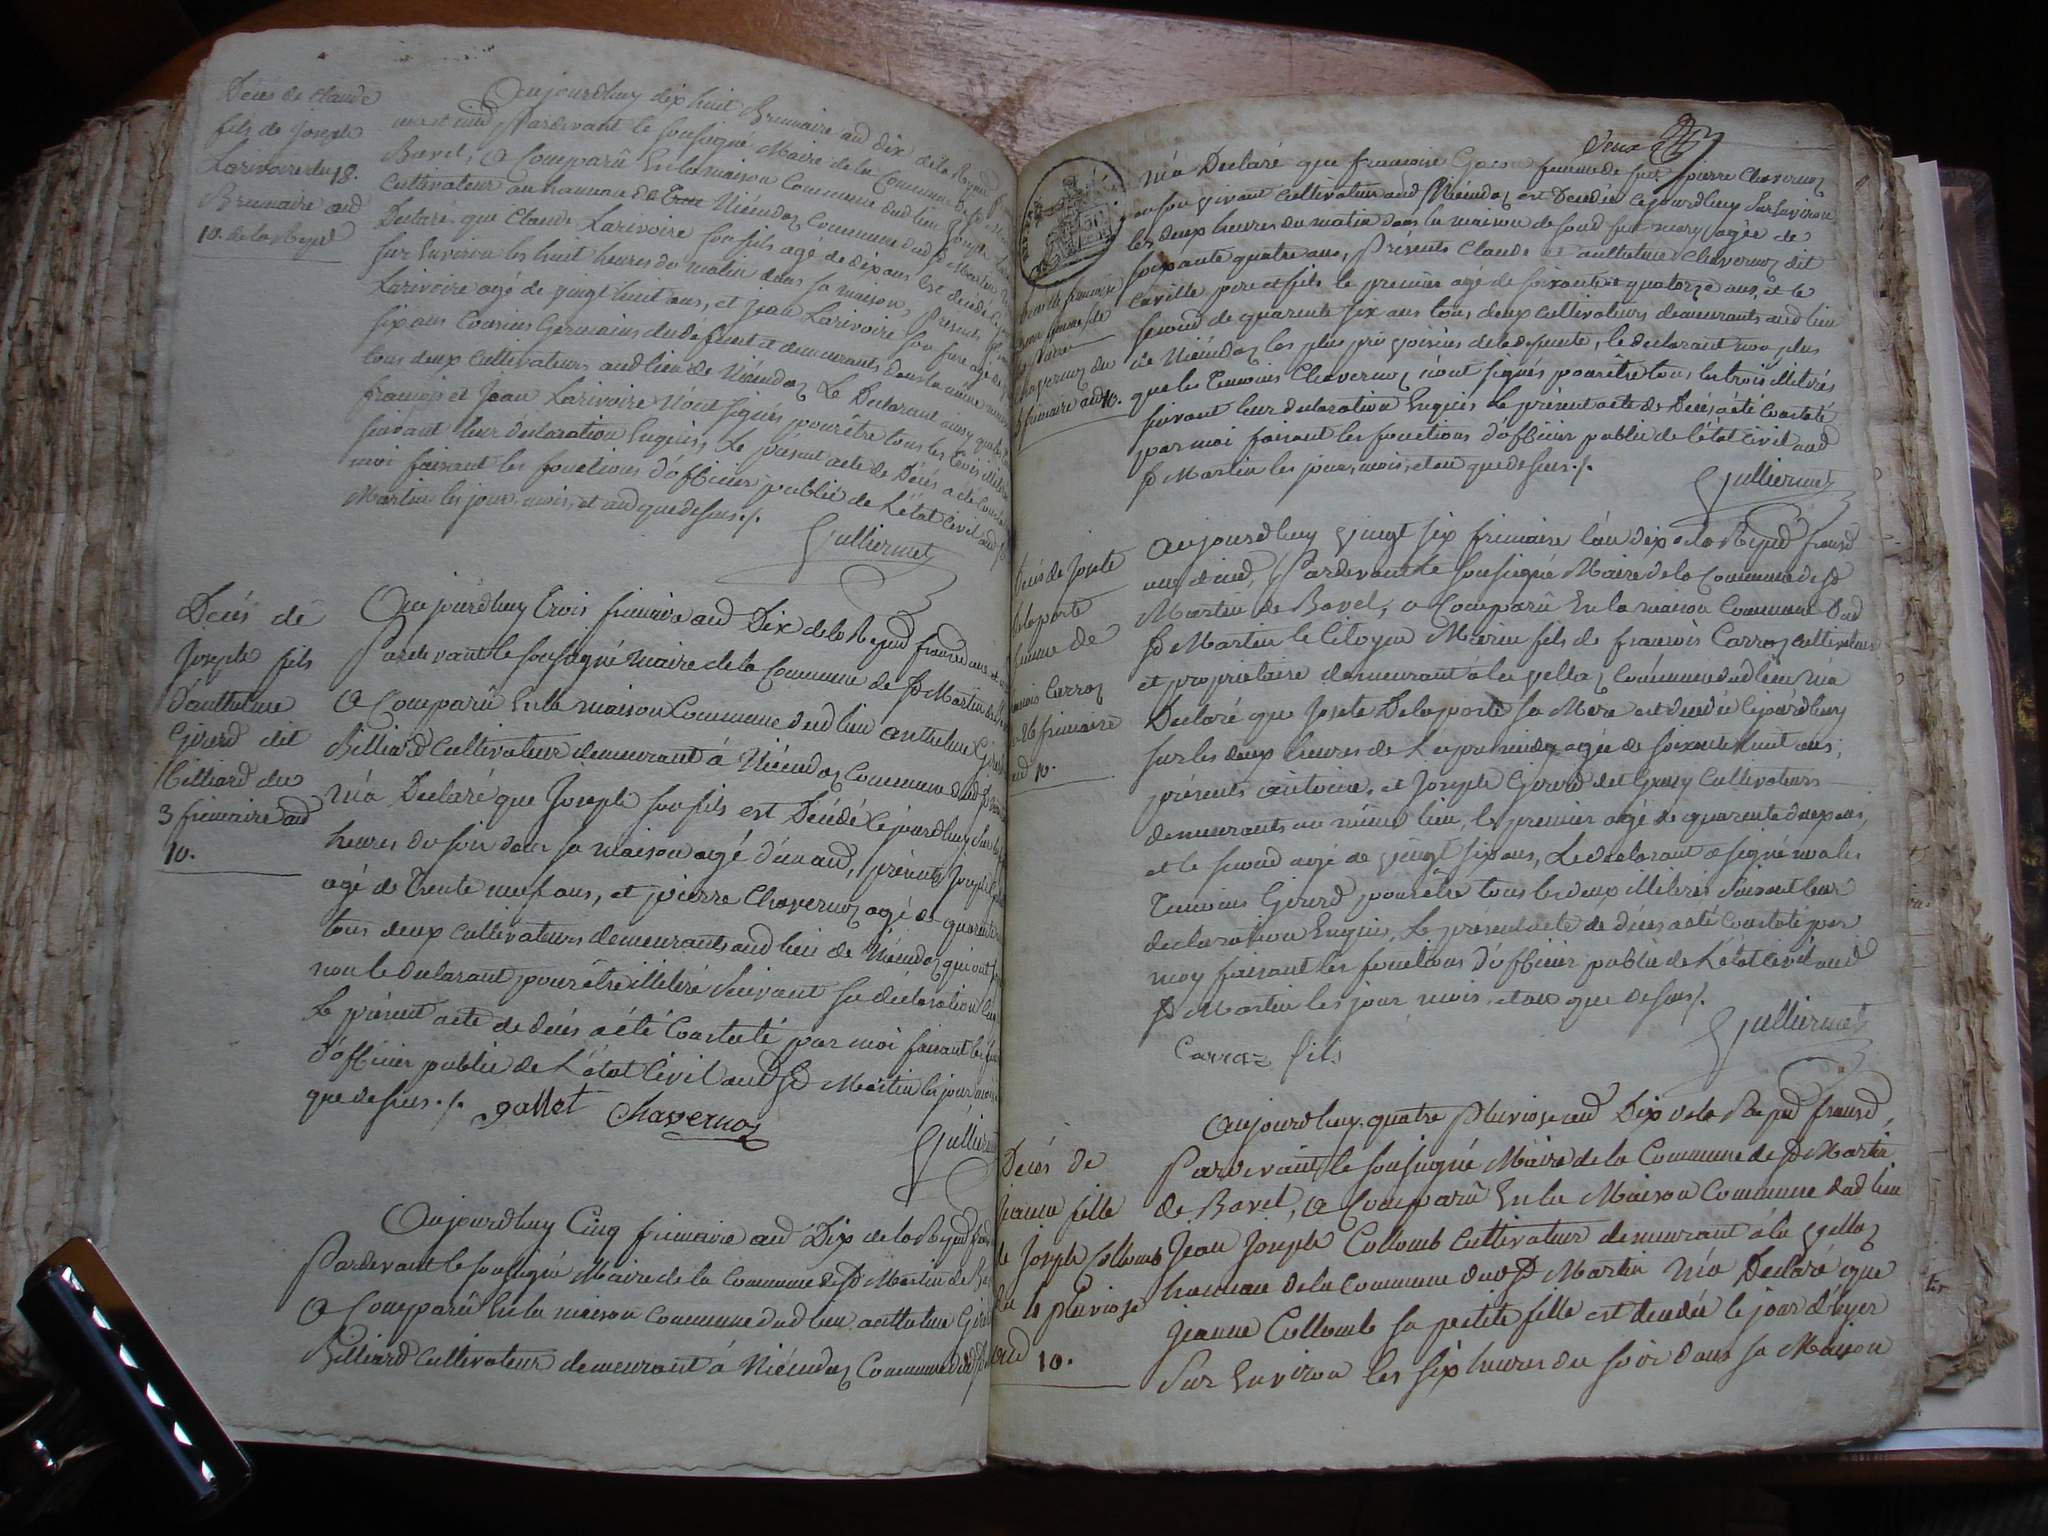 Décès de Claude
fils de Joseph
Larivoire du 18.
Brumaire and
10. de la Repud
Aujourdhuy dix huit Brumaire and dix de la Repud
une et ind, Pardevant le soussigné Maire de la Commune de St
Bavel, a Comparû En la maison Commune dud lieu Joseph
Cultivateur au hameau de Niéudaz Commune dud St Martin
Declaré que Claude Larivoire son fils agé de dix ans est decedé
sur Environ les huit heures du matin dans sa maison, présents
Larivoire agé de vingt huit ans, et jean Larivoire son frere agé de
six ans Cousins Germains du defunt et demeurants dans la même
tous deux Cultivateurs aud lieu de Niéudaz Le Declarant ainsy que
françois et Jean Larivoire N'ont signés pour être tous les trois
suivant leur déclaration Enquis, Le présent acte de Décès a été
moi faisant les fonctions d'officier public de L'état Civil aud St
Martin les jour, mois, et and que dessus ./.
Gulliermet
Décès de
Joseph fils
D'anthelme
Girerd dit
Billiard du
3 frimaire and
10.
Aujourdhuy trois frimaire and Dix de la Repud
Pardevant le soussigné Maire de la Commune de St Martin
a Comparû En la maison Commune dud lieu anthelme
Billiard Cultivateur demeurant à Niéudaz Commune dud St
M'a Declaré que Joseph son fils est Décédé Cejourdhuy Sur les
heures du soir dans sa maison agé d'un and, présents Joseph
agé de Trente neuf ans, et pierre Chavernoz agé de quarante
tous deux Cultivateurs demeurants aud lieu de Niéudaz qui ont
non le Declarant pour être illiteré Suivant sa déclaration
Le présent acte de Décès a été Constaté par moi faisant les
d'officier public de L'état Civil aud St Martin les jour mois
que dessus ./. gallet Chavernoz
Gulliermet
Aujourdhuy Cinq frimaire and Dix de la Repud
Pardevant le soussigné Maire de la Commune de St Martin de
a Comparû En la maison Commune dud lieu anthelme
Billiard Cultivateur demeurant à Niéudaz Commune dud St
M'a Declaré que francoise femme de feu pierre Chavernoz
son vivant Cultivateur aud Niéudaz est Décédée Cejourdhuy Sur Environ
les deux heures du matin dans la maison de son feu mary agée de
soixante quatre ans, Présents Claude et anthelme Chavernoz dit
Caville pere et fils le premier agé de soixante et quatorze ans, et le
second de quarente six ans tous deux Cultivateurs demeurants aud lieu
de Niéudaz les plus près voisins de la defunte, le declarant non plus
que les Temoins Chavernoz n'ont signés pour être tous les trois illiterés
suivant leur declaration Enquis Le présent acte de Décès a été Constaté
par moi faisant les fonctions d'officier public de L'état Civil aud
St Martin les jour, mois, et an que dessus ./.
Gulliermet
Chavernoz du
5 frimaire and 10.
Décès de Josete
Delaporte
femme de
françois Carraz
26 frimaire
and 10.
Aujourdhuy vingt six frimaire l'an dix de la Repud fransd
une et ind, Pardevant le soussigné Maire de la Commune de St
Martin de Bavel, a Comparû En la maison Commune Dud
St Martin le Citoyen Marin fils de francois Carraz Cultivateur
et propriétaire demeurant à la vellaz Commune dud lieu M'a
Declaré que Josete Delaporte sa Mere est decedée Cejourdhuy
sur les deux heures de L'après midy agée de soixante huit ans,
présents antoine, et Joseph Girerd dit Cultivateurs
demeurants au même lieu, le premier agé de quarente deux ans,
et le second agé de vingt six ans, Le declarant a signé non les
Temoins Girerd pour être tous les deux illiterés Suivant leur
declaration Enquis, Le présent acte de décès a été Constaté par
moy faisant les fonctions d'officier public de L'état Civil aud
St Martin les jour, mois, et an que dessus ./.
Gulliermet
Carraz fils
Décès de
jeanne fille
de Joseph Collomb
du 4 pluviose
and 10.
Aujourdhuy quatre Pluviose and Dix de la Repud fransd,
Pardevant le soussigné Maire de la Commune de St Martin
de Bavel, a Comparû En la Maison Commune dud lieu
Jean Joseph Collomb Cultivateur demeurant à la vellaz
hameau de la Commune dud St Martin M'a Declaré que
jeanne Collomb sa petite fille est decedée le jour d'hyer
Sur Environ les six heures du soir dans sa Maison